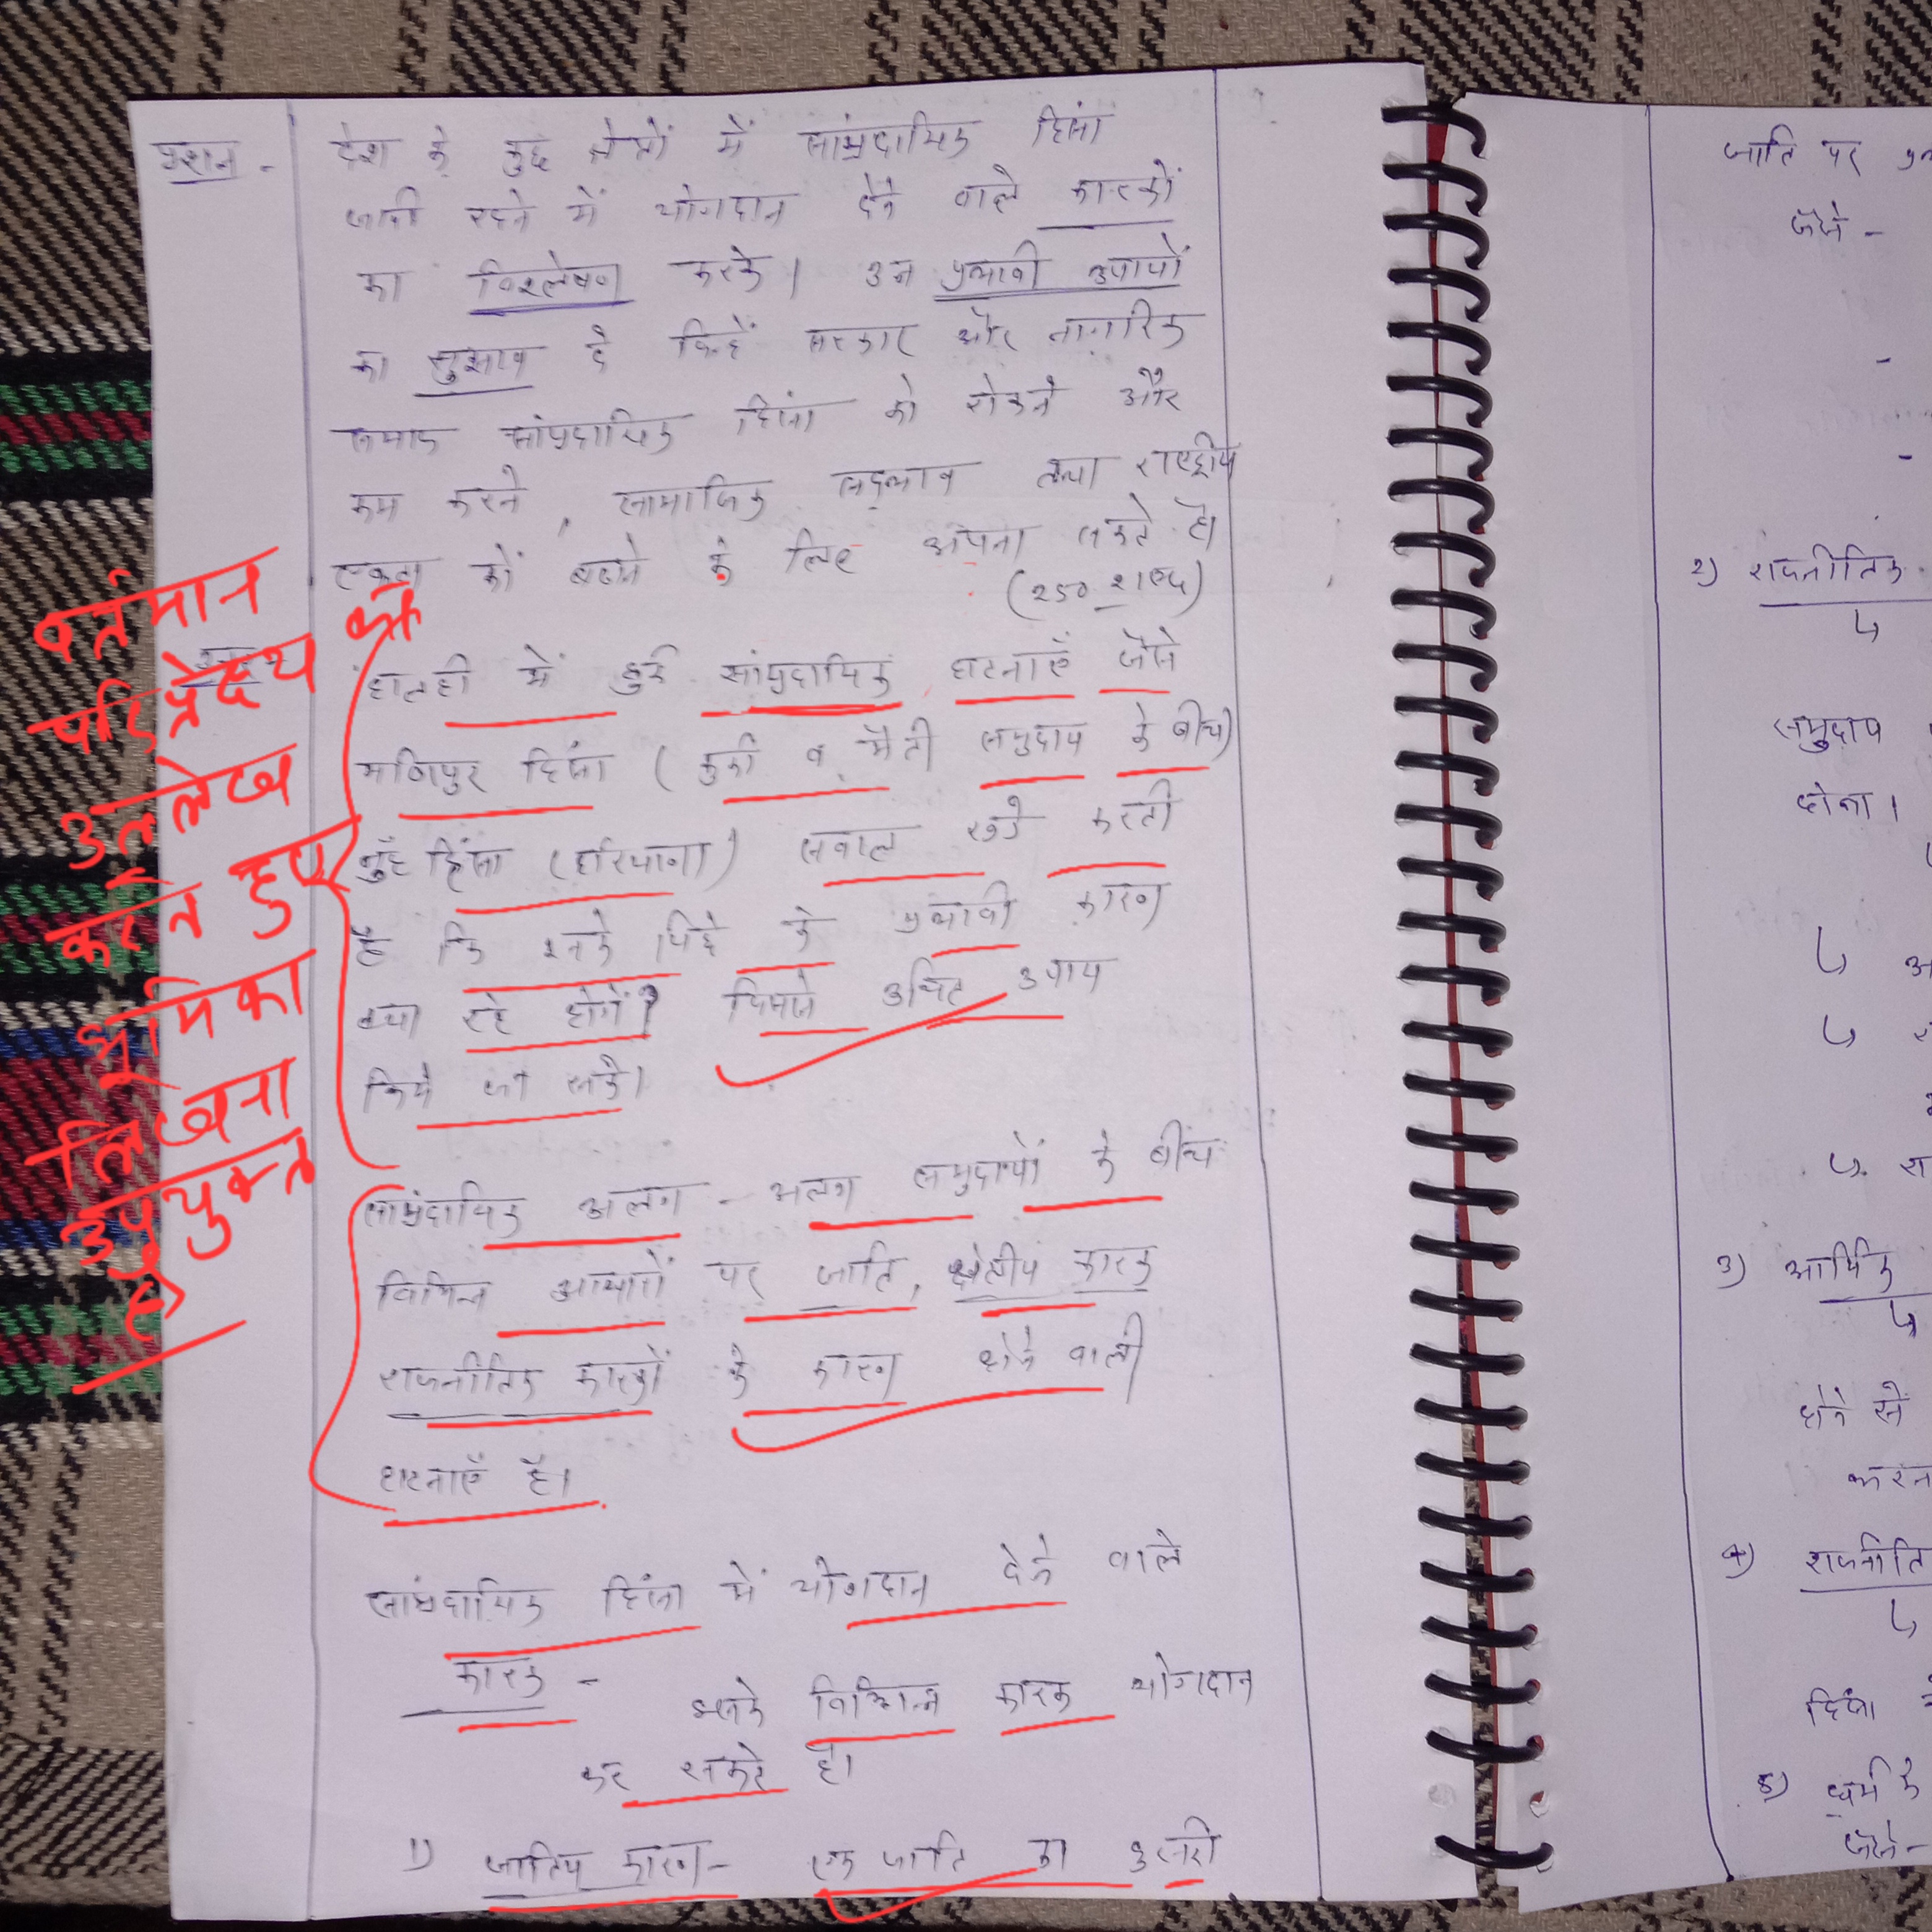 प्रशन - देश के कुछ क्षेत्रों में सांप्रदायिक हिंसा
जारी रहने में योगदान देने वाले कारकों
का विश्लेषण करके। उन प्रभावी उपायों
का सुझाव दे जिन्हें सरकार और नागरिक
समाज सांप्रदायिक हिंसा को रोकने और
कम करने, सामाजिक सद्भाव तथा राष्ट्रीय
एकता को बढाने के लिए अपना सकते है।
(250 शब्द)
हालही में हुई सांप्रदायिक घटनाएँ जैसे
मणिपुर हिंसा (कुकी व मैती समुदाय के बीच)
नुँह हिंसा (हरियाणा) सवाल खडे करती
है कि इनके पिछे के प्रभावी कारण
क्या रहे होगें? जिससे उचित उपाय
किये जा सके।
सांप्रदायिक अलग - अलग समुदायों के बीच
विभिन्न आधारों पर जाति, क्षेत्रीय कारक
राजनीतिक कारकों के कारण होने वाली
घटनाएँ है।
सांप्रदायिक हिंसा में योगदान देने वाले
कारक -
इनके विभिन्न कारक योगदान
कर सकते है।
1) जातिय कारण - एक जाति का दुसरी
वर्तमान
परिप्रेक्ष्य का
उल्लेख
करते हुए
भूमिका
लिखना
उपयुक्त
है।
जाति पर
जैसे -
-
-
2) राजनीतिक
समुदाय
होना।
3) आर्थिक
होने से
करना
4) राजनीति
हिंसा
5) धर्म के
जैसे -